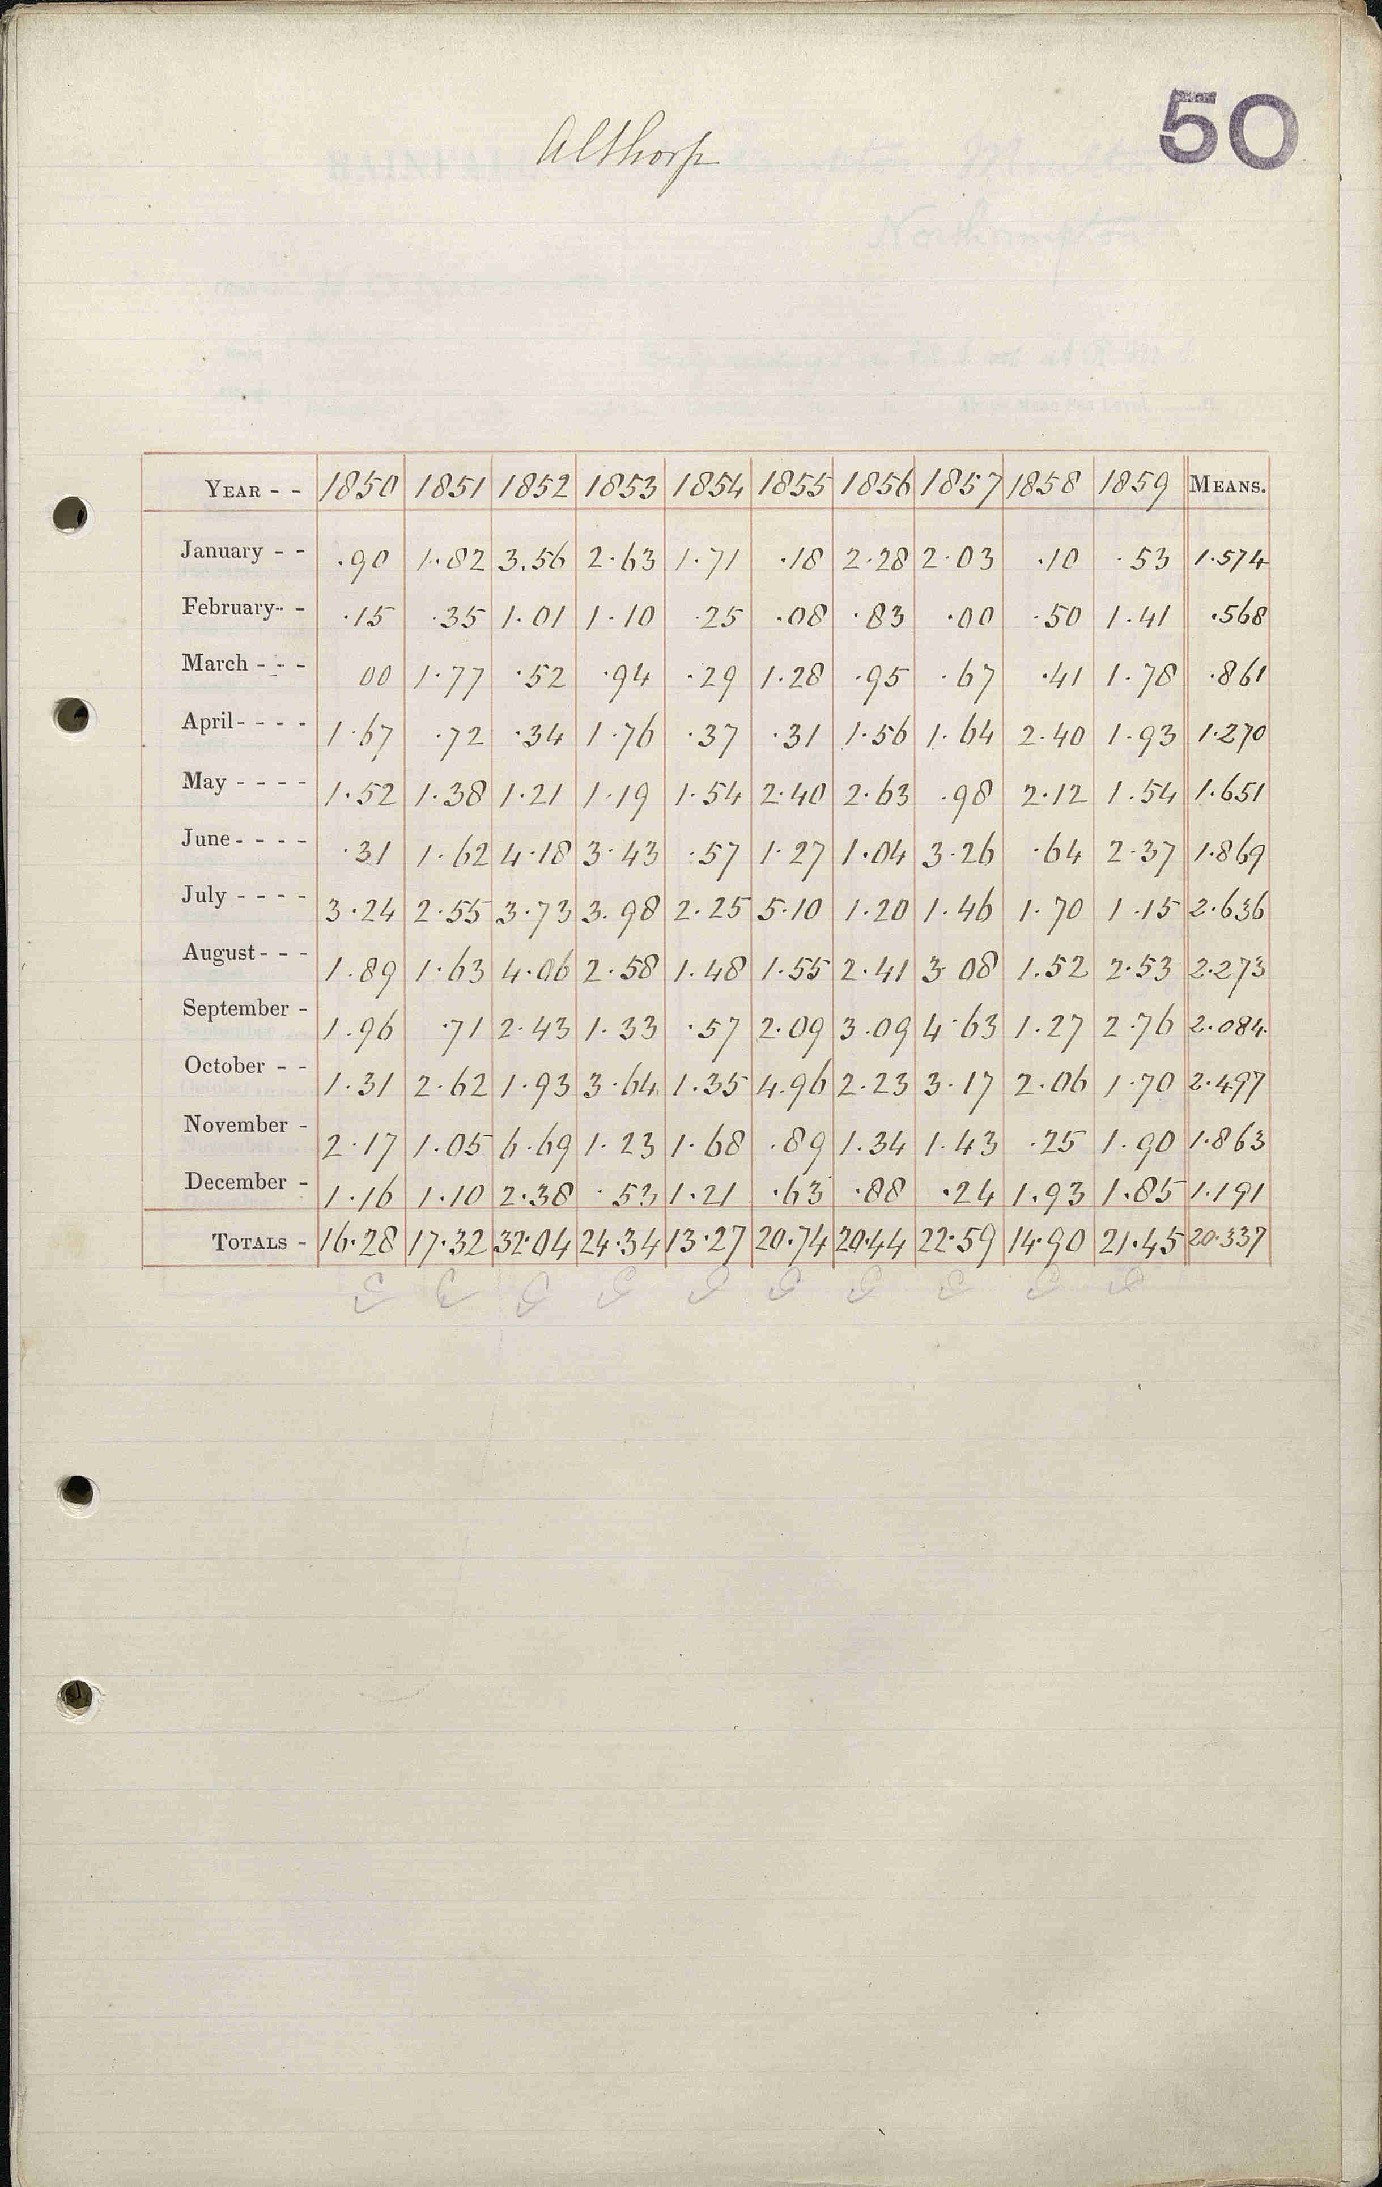 50
Althorp
YEAR - - 1850 1851 1852 1853 1854 1855 1856 1857 1858 1859 MEANS.
January - - ·90 1·82 3.56 2·63 1·71 ·18 2·28 2·03 ·10 ·53 1·574
February - - ·15 ·35 1·01 1·10 ·25 ·08 ·83 ·00 ·50 1·41 ·568
March - - - 00 1·77 ·52 ·94 ·29 1·28 ·95 ·67 ·41 1·78 ·861
April - - - - 1·67 ·72 ·34 1·76 ·37 ·31 1·56 1·64 2·40 1·93 1·270
May - - - - 1·52 1·38 1·21 1·19 1·54 2·40 2·63 ·98 2·12 1·54 1·651
June - - - - ·31 1·62 4·18 3·43 ·57 1·27 1·04 3·26 ·64 2·37 1·869
July - - - - 3·24 2·55 3·73 3·98 2·25 5·10 1·20 1·46 1·70 1·15 2·636
August - - - 1·89 1·63 4·06 2·58 1·48 1·55 2·41 3·08 1·52 2·53 2·273
September - 1·96 ·71 2·43 1·33 ·57 2·09 3·09 4·63 1·27 2·76 2·084
October - - 1·31 2·62 1·93 3·64 1·35 4·96 2·23 3·17 2·06 1·70 2·497
November - 2·17 1·05 6·69 1·23 1·68 ·89 1·34 1·43 ·25 1·90 1·863
December - 1·16 1·10 2·38 ·53 1·21 ·63 ·88 ·24 1·93 1·85 1·191
TOTALS - 16·28 17·32 32·04 24·34 13·27 20·74 20·44 22·59 14·90 21·45 20·337